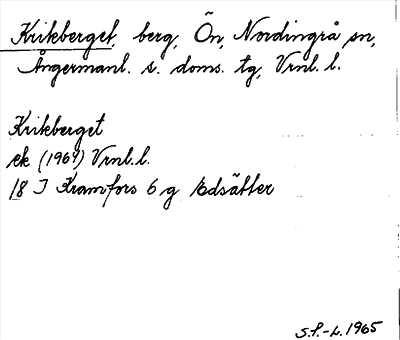 Krikberget, berg, Ön, Nordingrå sn,
Ångermanl. s. doms. tg, Vrnl. l.
Krikberget
ek (1964) Vrnl. l.
18 J Kramfors 6 g Edsätter
S.f.-L. 1965